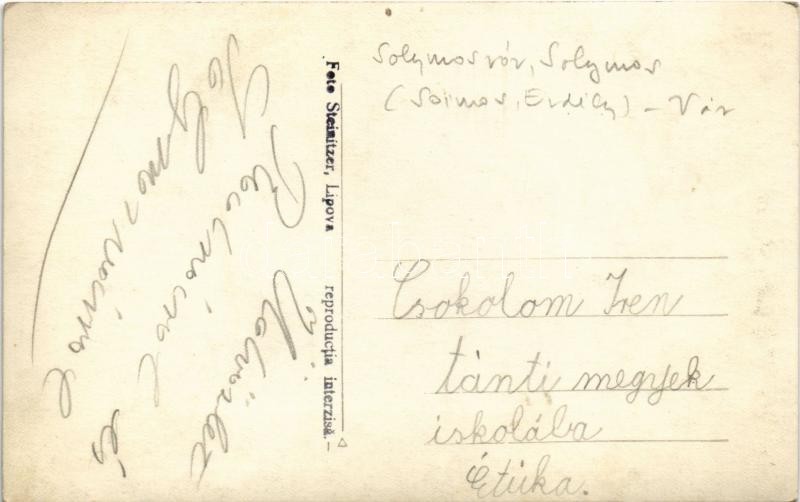 Solymosvár, Solymos
(Soimos, Erdély) - Vár
Csokolom Iren
tánti megyek
iskolába
Étuka.
Foto Steinitzer, Lipova reproducția interzisă.-
Üdvözlet
és